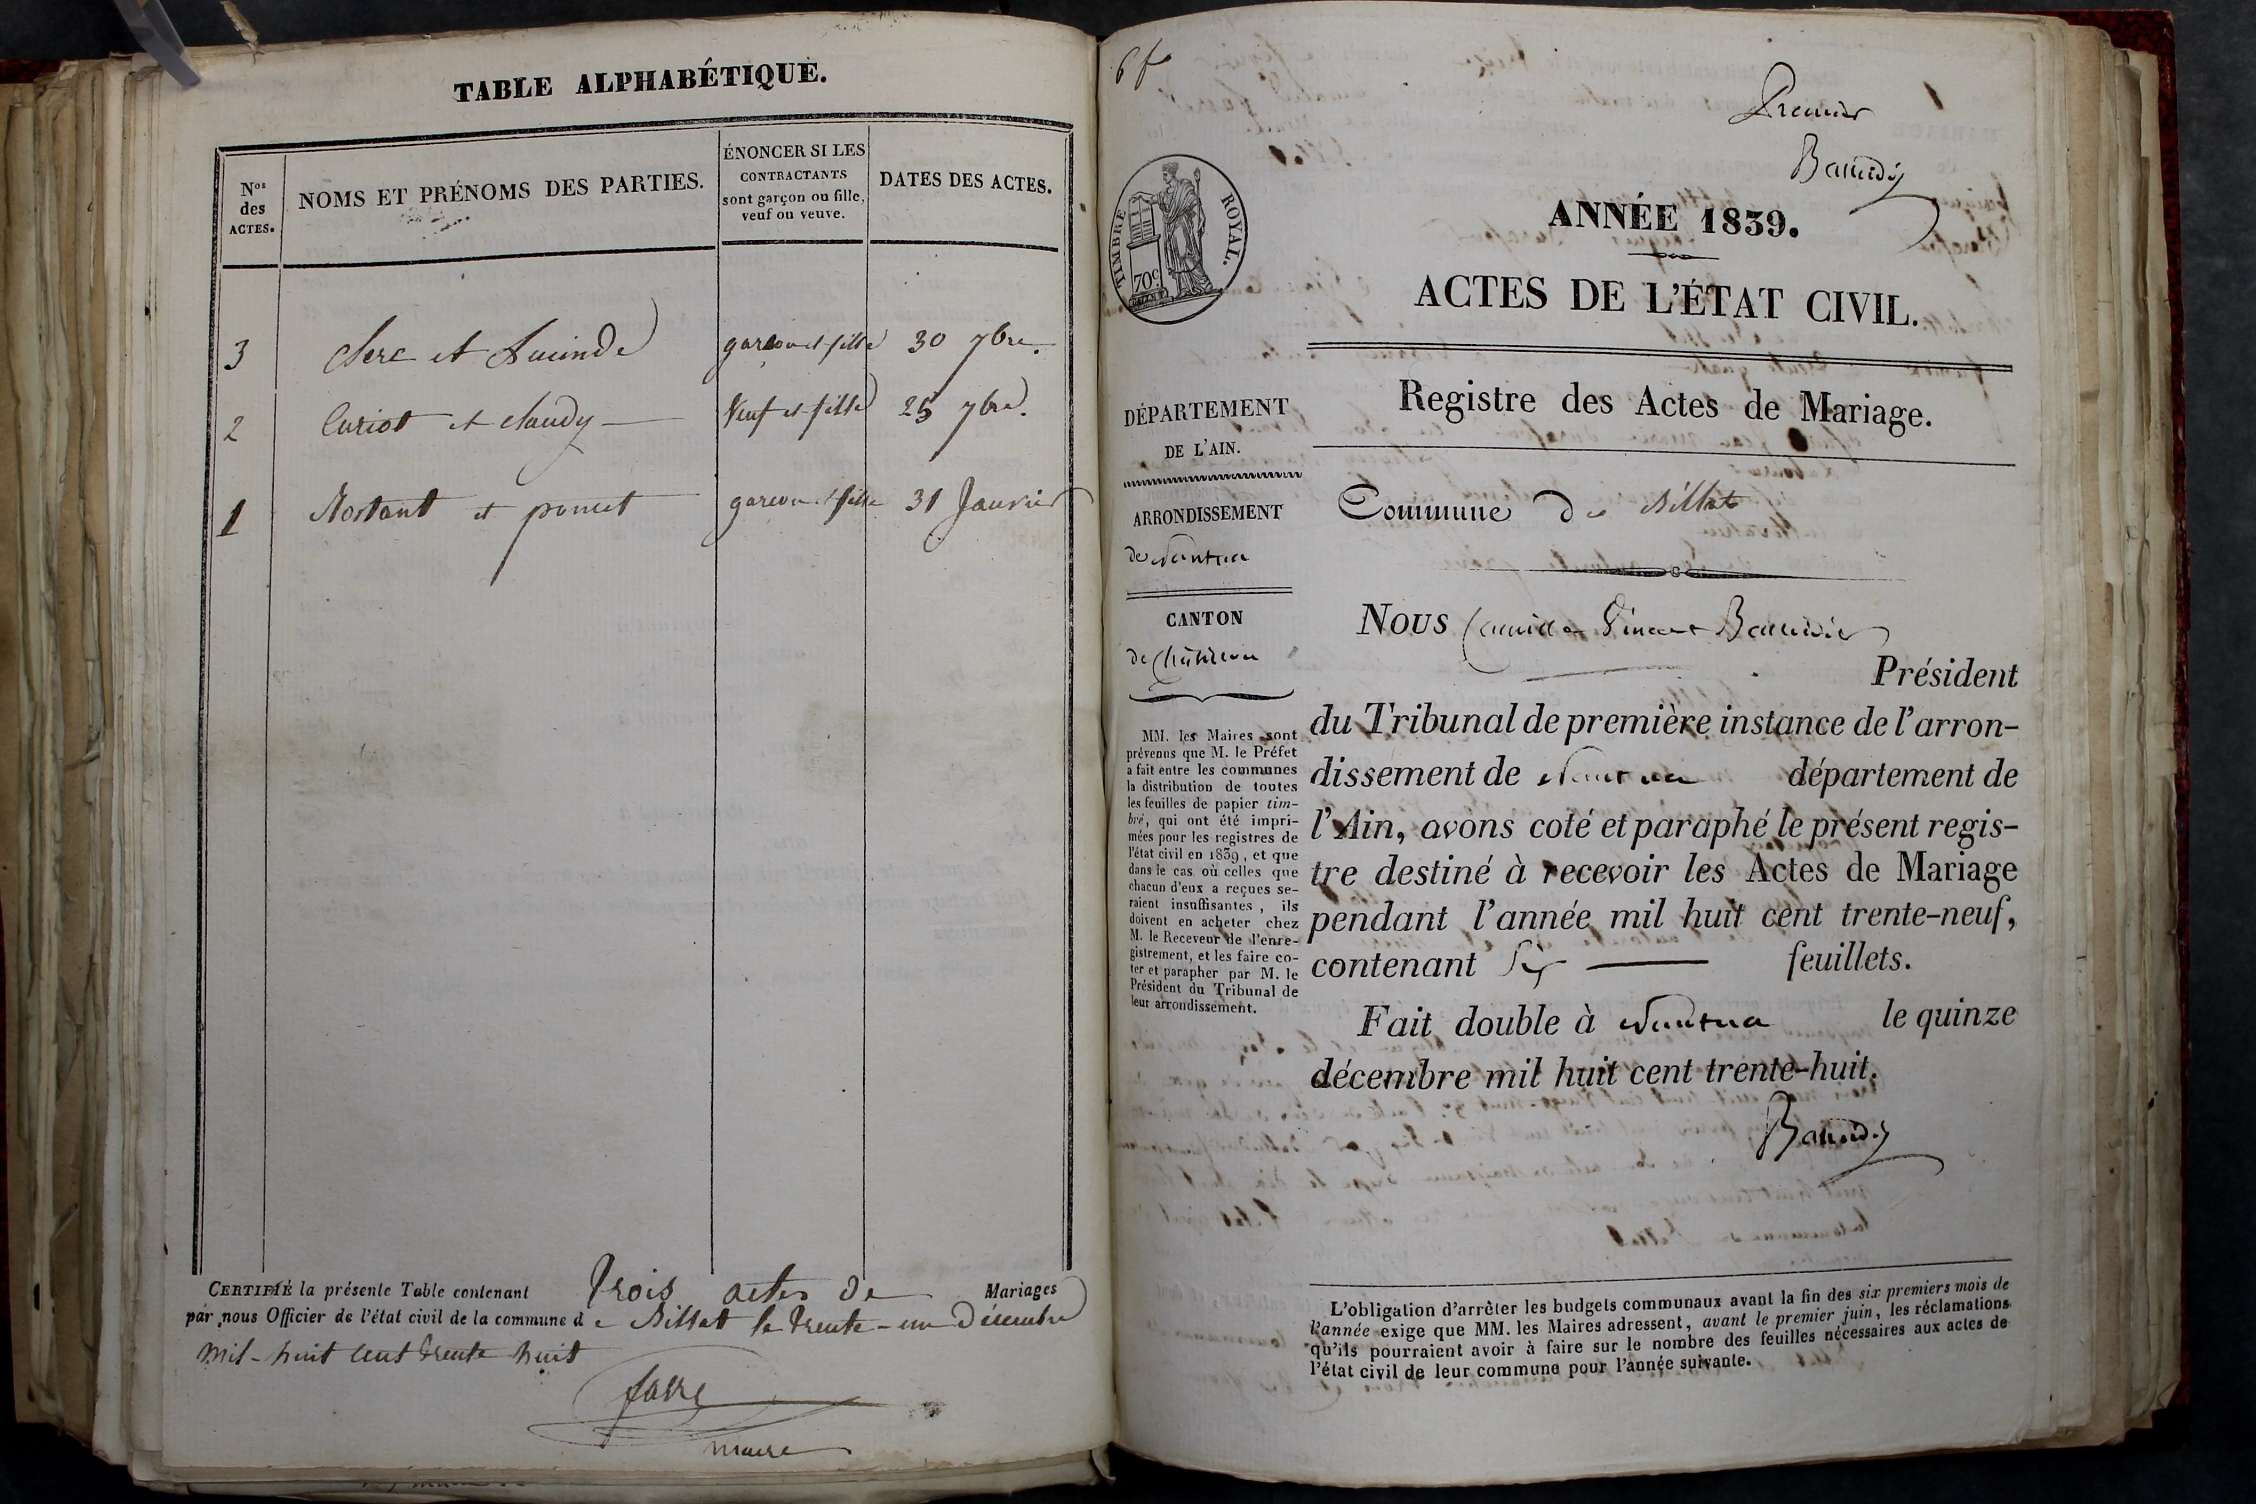 TABLE ALPHABÉTIQUE.
Nos
des
ACTES.
NOMS ET PRÉNOMS DES PARTIES.
ÉNONCER SI LES
CONTRACTANTS
sont garçon ou fille,
veuf ou veuve.
DATES DES ACTES.
3 Clerc et garcon et fille 30 7bre.
2 Curiot et Claudy Veuf et fille 25 7bre.
1 et poncet garcon et fille 31 Janvier
CERTIFIÉ la présente Table contenant trois actes de Mariages
par nous Officier de l'état civil de la commune de Billat le trente-un Décembre
mil-huit cent trente huit
favre
maire
6 f
Premier
Baudier
TIMBRE ROYAL.
70c
ANNÉE 1839.
ACTES DE L'ÉTAT CIVIL.
Registre des Actes de Mariage.
DÉPARTEMENT
DE L'AIN.
ARRONDISSEMENT
de Nantua
CANTON
de Châtillon
MM. les Maires sont
prévenus que M. le Préfet
a fait entre les communes
la distribution de toutes
les feuilles de papier tim-
bré, qui ont été impri-
mées pour les registres de
l'état civil en 1839, et que
dans le cas où celles que
chacun d'eux a reçues se-
raient insuffisantes, ils
doivent en acheter chez
M. le Receveur de l'enre-
gistrement, et les faire co-
ter et parapher par M. le
Président du Tribunal de
leur arrondissement.
Commune de Billat
NOUS Camille Vincent Baudier
Président
du Tribunal de première instance de l'arron-
dissement de Nantua département de
l'Ain, avons coté et paraphé le présent regis-
tre destiné à recevoir les Actes de Mariage
pendant l'année mil huit cent trente-neuf,
contenant Six feuillets.
Fait double à Nantua le quinze
décembre mil huit cent trente-huit.
Baudier
L'obligation d'arrêter les budgets communaux avant la fin des six premiers mois de
l'année exige que MM. les Maires adressent, avant le premier juin, les réclamations
qu'ils pourraient avoir à faire sur le nombre des feuilles nécessaires aux actes de
l'état civil de leur commune pour l'année suivante.